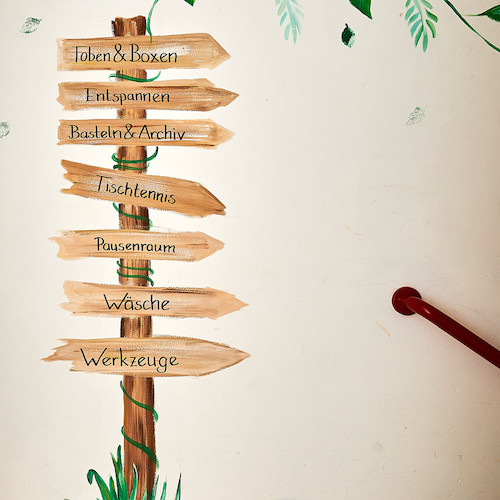 Toben & Boxen
Entspannen
Basteln & Archiv
Tischtennis
Pausenraum
Wäsche
Werkzeuge